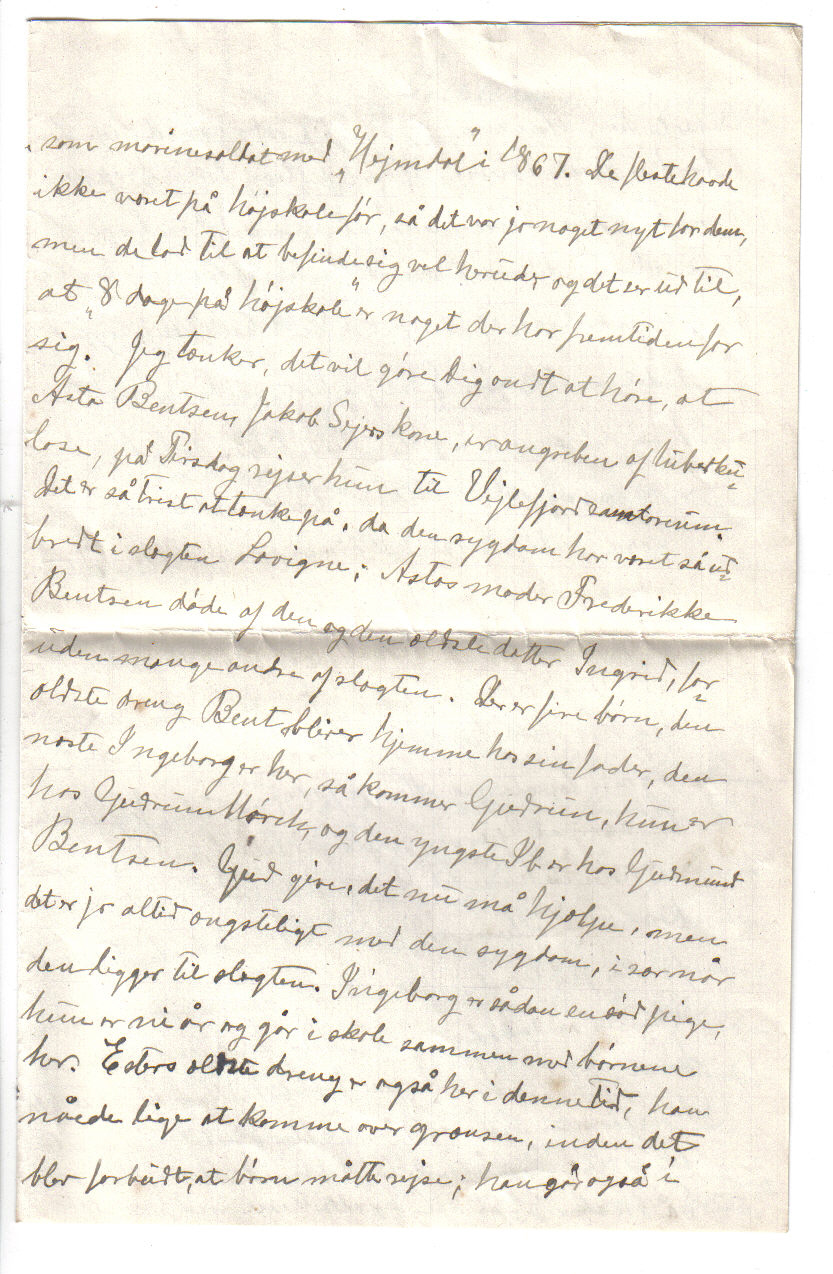 som marinesoldat med „Hejmdal" i 1867. De fleste havde
ikke været på højskole før, så det var jo noget nyt for dem,
men de lod til at befinde sig vel herude og det ser ud til,
at „8 dage på højskole" er noget der har fremtiden for
sig. Jeg tænker, det vil gøre Dig ondt at høre, at
Asta Bentsen, Jakob Sejers kone, er angreben af tuberku=
lose, på Tirsdag rejser hun til Vejlefjord sanatorium.
Det er så trist at tænke på, da den sygdom har været så ud=
bredt i slægten Lavigne; Astas moder Frederikke
Bentsen døde af den og den ældste datter Ingrid, for=
uden mange andre af slægten. Der er fire børn, den
ældste dreng Bent bliver hjemme hos sin fader, den
næste Ingeborg er her, så kommer Gudrun, hun er
hos Gudrun Mørch, og den yngste Ib er hos Gudmund
Bentsen. Gud give, det nu må hjælpe, men
det er jo altid ængsteligt med den sygdom, især når
den ligger til slægten. Ingeborg er sådan en sød pige,
hun er ni år og går i skole sammen med børnene
her. Esters ældste dreng er også her i denne tid, han
nåede lige at komme over grænsen, inden det
blev forbudt, at børn måtte rejse; han går også i